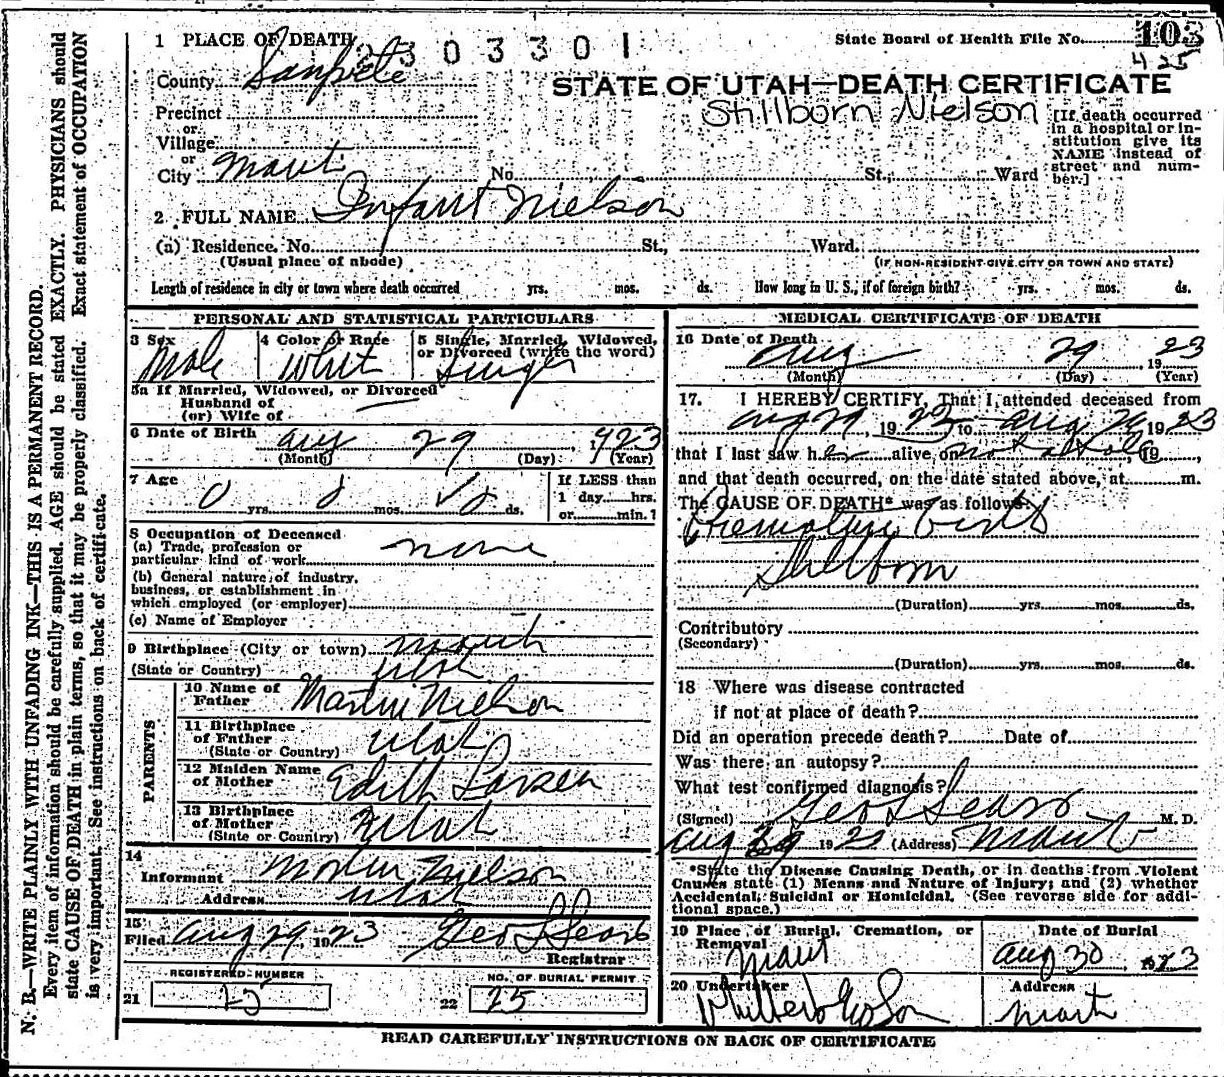 1 PLACE OF DEATH
2303301
State Board of Health File No. 103
425
County Sanpete
STATE OF UTAH—DEATH CERTIFICATE
Stillborn Nielson
Precinct
or
Village
or
City Manti No. St.; Ward
[If death occurred
in a hospital or in-
stitution give its
NAME instead of
street and num-
ber.]
2 FULL NAME Infant Nielson
(a) Residence. No. St., Ward.
(Usual place of abode) (IF NON-RESIDENT GIVE CITY OR TOWN AND STATE)
Length of residence in city or town where death occurred yrs. mos. ds. How long in U. S., if of foreign birth? yrs. mos. ds.
PERSONAL AND STATISTICAL PARTICULARS
3 Sex Male
4 Color or Race Whit
5 Single, Married, Widowed,
or Divorced (write the word)
Single
5a If Married, Widowed, or Divorced
Husband of
(or) Wife of
6 Date of Birth Aug 29 1923
(Month) (Day) (Year)
7 Age 0 yrs. 0 mos. ds.
If LESS than
1 day hrs.
or min.?
8 Occupation of Deceased
(a) Trade, profession or
particular kind of work none
(b) General nature of industry,
business, or establishment in
which employed (or employer)
(c) Name of Employer
9 Birthplace (City or town) Manti
(State or Country) Utah
PARENTS
10 Name of
Father Martin Nielson
11 Birthplace
of Father
(State or Country) Utah
12 Maiden Name
of Mother Edith Larsen
13 Birthplace
of Mother
(State or Country) Utah
14
Informant Martin Nielson
Address Utah
15
Filed Aug 29 1923 Geo L Sears
Registrar
REGISTERED NUMBER
21 25
NO. OF BURIAL PERMIT
22 25
MEDICAL CERTIFICATE OF DEATH
16 Date of Death
Aug 29, 1923
(Month) (Day) (Year)
17. I HEREBY CERTIFY, That I attended deceased from
Aug 29, 1923 to Aug 29, 1923
that I last saw h er alive on not at all, 19
and that death occurred, on the date stated above, at m.
The CAUSE OF DEATH* was as follows:
Premature birth
Stillborn
(Duration) yrs. mos. ds.
Contributory
(Secondary)
(Duration) yrs. mos. ds.
18 Where was disease contracted
if not at place of death?
Did an operation precede death? Date of
Was there an autopsy?
What test confirmed diagnosis?
(Signed) Geo L Sears M. D.
Aug 29 192 (Address) Manti
*State the Disease Causing Death, or in deaths from Violent
Causes state (1) Means and Nature of Injury; and (2) whether
Accidental, Suicidal or Homicidal. (See reverse side for addi-
tional space.)
19 Place of Burial, Cremation, or
Removal
Manti
Date of Burial
Aug 30 1923
20 Undertaker
Address
Manti
READ CAREFULLY INSTRUCTIONS ON BACK OF CERTIFICATE
N. B.—WRITE PLAINLY WITH UNFADING INK—THIS IS A PERMANENT RECORD.
Every item of information should be carefully supplied. AGE should be stated EXACTLY. PHYSICIANS should
state CAUSE OF DEATH in plain terms, so that it may be properly classified. Exact statement of OCCUPATION
is very important. See instructions on back of certificate.